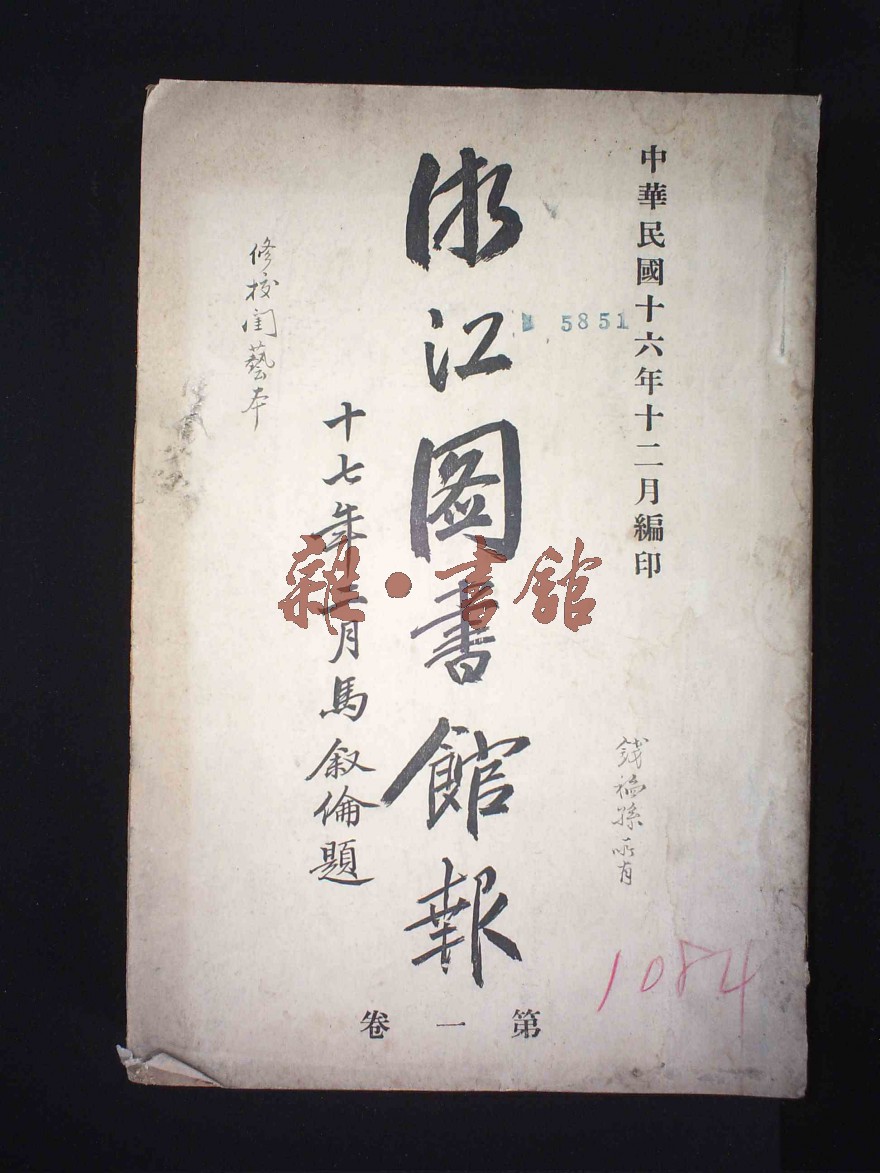 中華民國十六年十二月編印
浙江圖書館報
十七年二月馬叙倫題
第一卷
5851
修校閨藝本
錢稻孫所有
1084
雜·書館